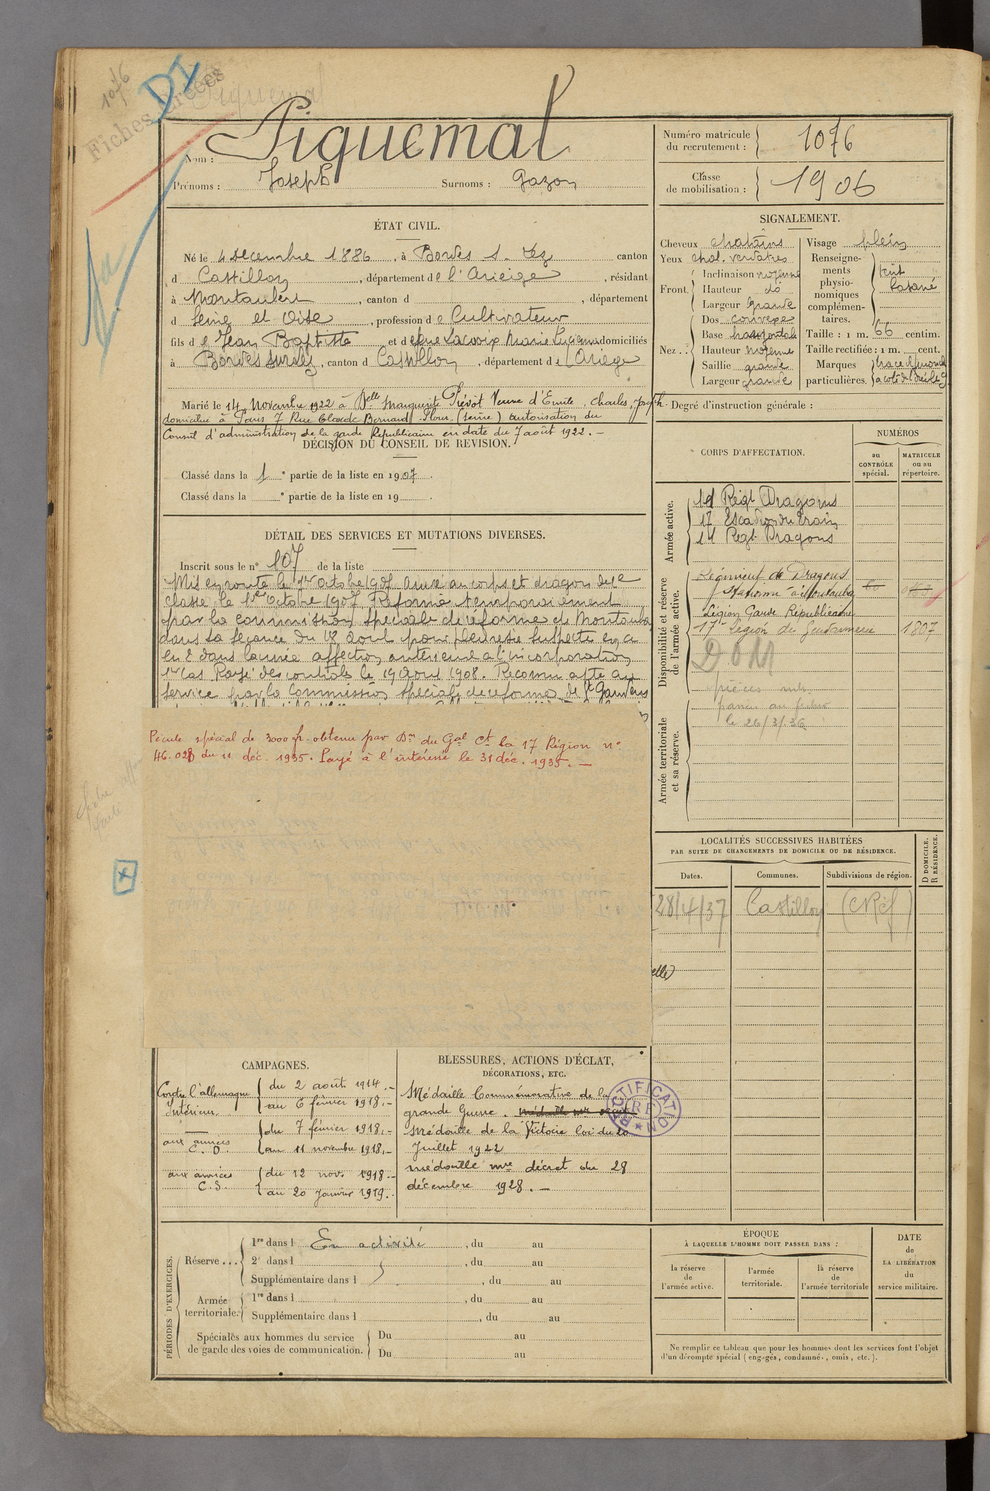 1076
Fiches
DI
Nom : Piquemal
Prénoms : Joseph Surnoms : Gazon
Numéro matricule
du recrutement : 1076
Classe
de mobilisation : 1906
ÉTAT CIVIL.
Né le 4 Décembre 1886, à Bordes s. Lez canton
d Castillon, département de l'Ariège, résidant
à Montaubert, canton d , département
d Seine et Oise, profession de Cultivateur
fils de Jean Baptiste et de domiciliés
à Bordes sur Lez, canton de Castillon, département de l'Ariège
Marié le 14 Novembre 1922 à Delle Marguerite Prévôt Veuve d'Emile, Charles, Joseph
domicilié à Paris 7 Rue Claude Bernard (Seine) autorisation du
Conseil d'administration de la garde Républicaine en date du 7 août 1922. –
DÉCISION DU CONSEIL DE REVISION.
Classé dans la 1 e partie de la liste en 1907.
Classé dans la e partie de la liste en 19 .
DÉTAIL DES SERVICES ET MUTATIONS DIVERSES.
Inscrit sous le n° 107 de la liste
Mis en route le 1er octobre 1907. arrivé au corps et dragon de 2e
classe le 1er Octobre 1907. Réformé temporairement
par la commission spéciale de réforme de Montauban
dans sa séance du 18 août pour pleurésie suspecte
affection antérieure à l'incorporation
1er cas Rayé des contrôles le 19 Août 1908. Reconnu apte au
service par la Commission spéciale de réforme de St Gaudens
Pécule spécial de 3000 fr. obtenu par Dn du Gal Ct la 17 Région n°
46.028 du 11 déc. 1935. Payé à l'intéressé le 31 déc. 1935. –
SIGNALEMENT.
Cheveux chatains
Yeux chat. verdâtres
Front. Inclinaison moyenne
Hauteur do
Largeur grande
Nez.. Dos convexe
Base horizontale
Hauteur moyenne
Saillie grande
Largeur grande
Visage plein
Renseigne-
ments
physio-
nomiques
complémen-
taires. teint
basané
Taille : 1 m. 66 centim.
Taille rectifiée : 1 m. cent.
Marques
particulières.
Degré d'instruction générale :
CORPS D'AFFECTATION.
NUMÉROS
au
CONTRÔLE
spécial.
MATRICULE
ou au
répertoire.
Armée active.
Régt Dragons
17 Escadron du Train
Regt Dragons
Disponibilité et réserve
de l'armée active.
Régiment de Dragons
Légion Garde Républicaine
17e Légion de Gendarmerie 1807
DOM
Armée territoriale
et sa réserve.
le 26/3/36
LOCALITÉS SUCCESSIVES HABITÉES
PAR SUITE DE CHANGEMENTS DE DOMICILE OU DE RÉSIDENCE.
Dates. Communes. Subdivisions de région. D DOMICILE. R RÉSIDENCE.
28/4/37 Castillon
CAMPAGNES.
Contre l'allemagne du 2 août 1914.–
Intérieur au 6 février 1918.–
aux armées du 7 février 1918.–
C. D. au 11 novembre 1918.–
aux armées du 12 nov. 1918–
C. S. au 20 Janvier 1919.
BLESSURES, ACTIONS D'ÉCLAT,
DÉCORATIONS, ETC.
Médaille Commémorative de la
grande Guerre.
Médaille de la Victoire loi du 20
Juillet 1922
médaille mre décret du 28
décembre 1928. –
RECTIFICATION
RF
PÉRIODES D'EXERCICES.
Réserve ... 1re dans l En activité , du au
2e dans l , du au
Supplémentaire dans l , du au
Armée
territoriale. 1re dans l , du au
Supplémentaire dans l , du au
Spéciales aux hommes du service
de garde des voies de communication. Du au
Du au
ÉPOQUE
À LAQUELLE L'HOMME DOIT PASSER DANS :
la réserve
de
l'armée active.
l'armée
territoriale.
la réserve
de
l'armée territoriale
DATE
de
LA LIBÉRATION
du
service militaire.
Ne remplir ce tableau que pour les hommes dont les services font l'objet
d'un décompte spécial (engagés, condamnés, omis, etc.).